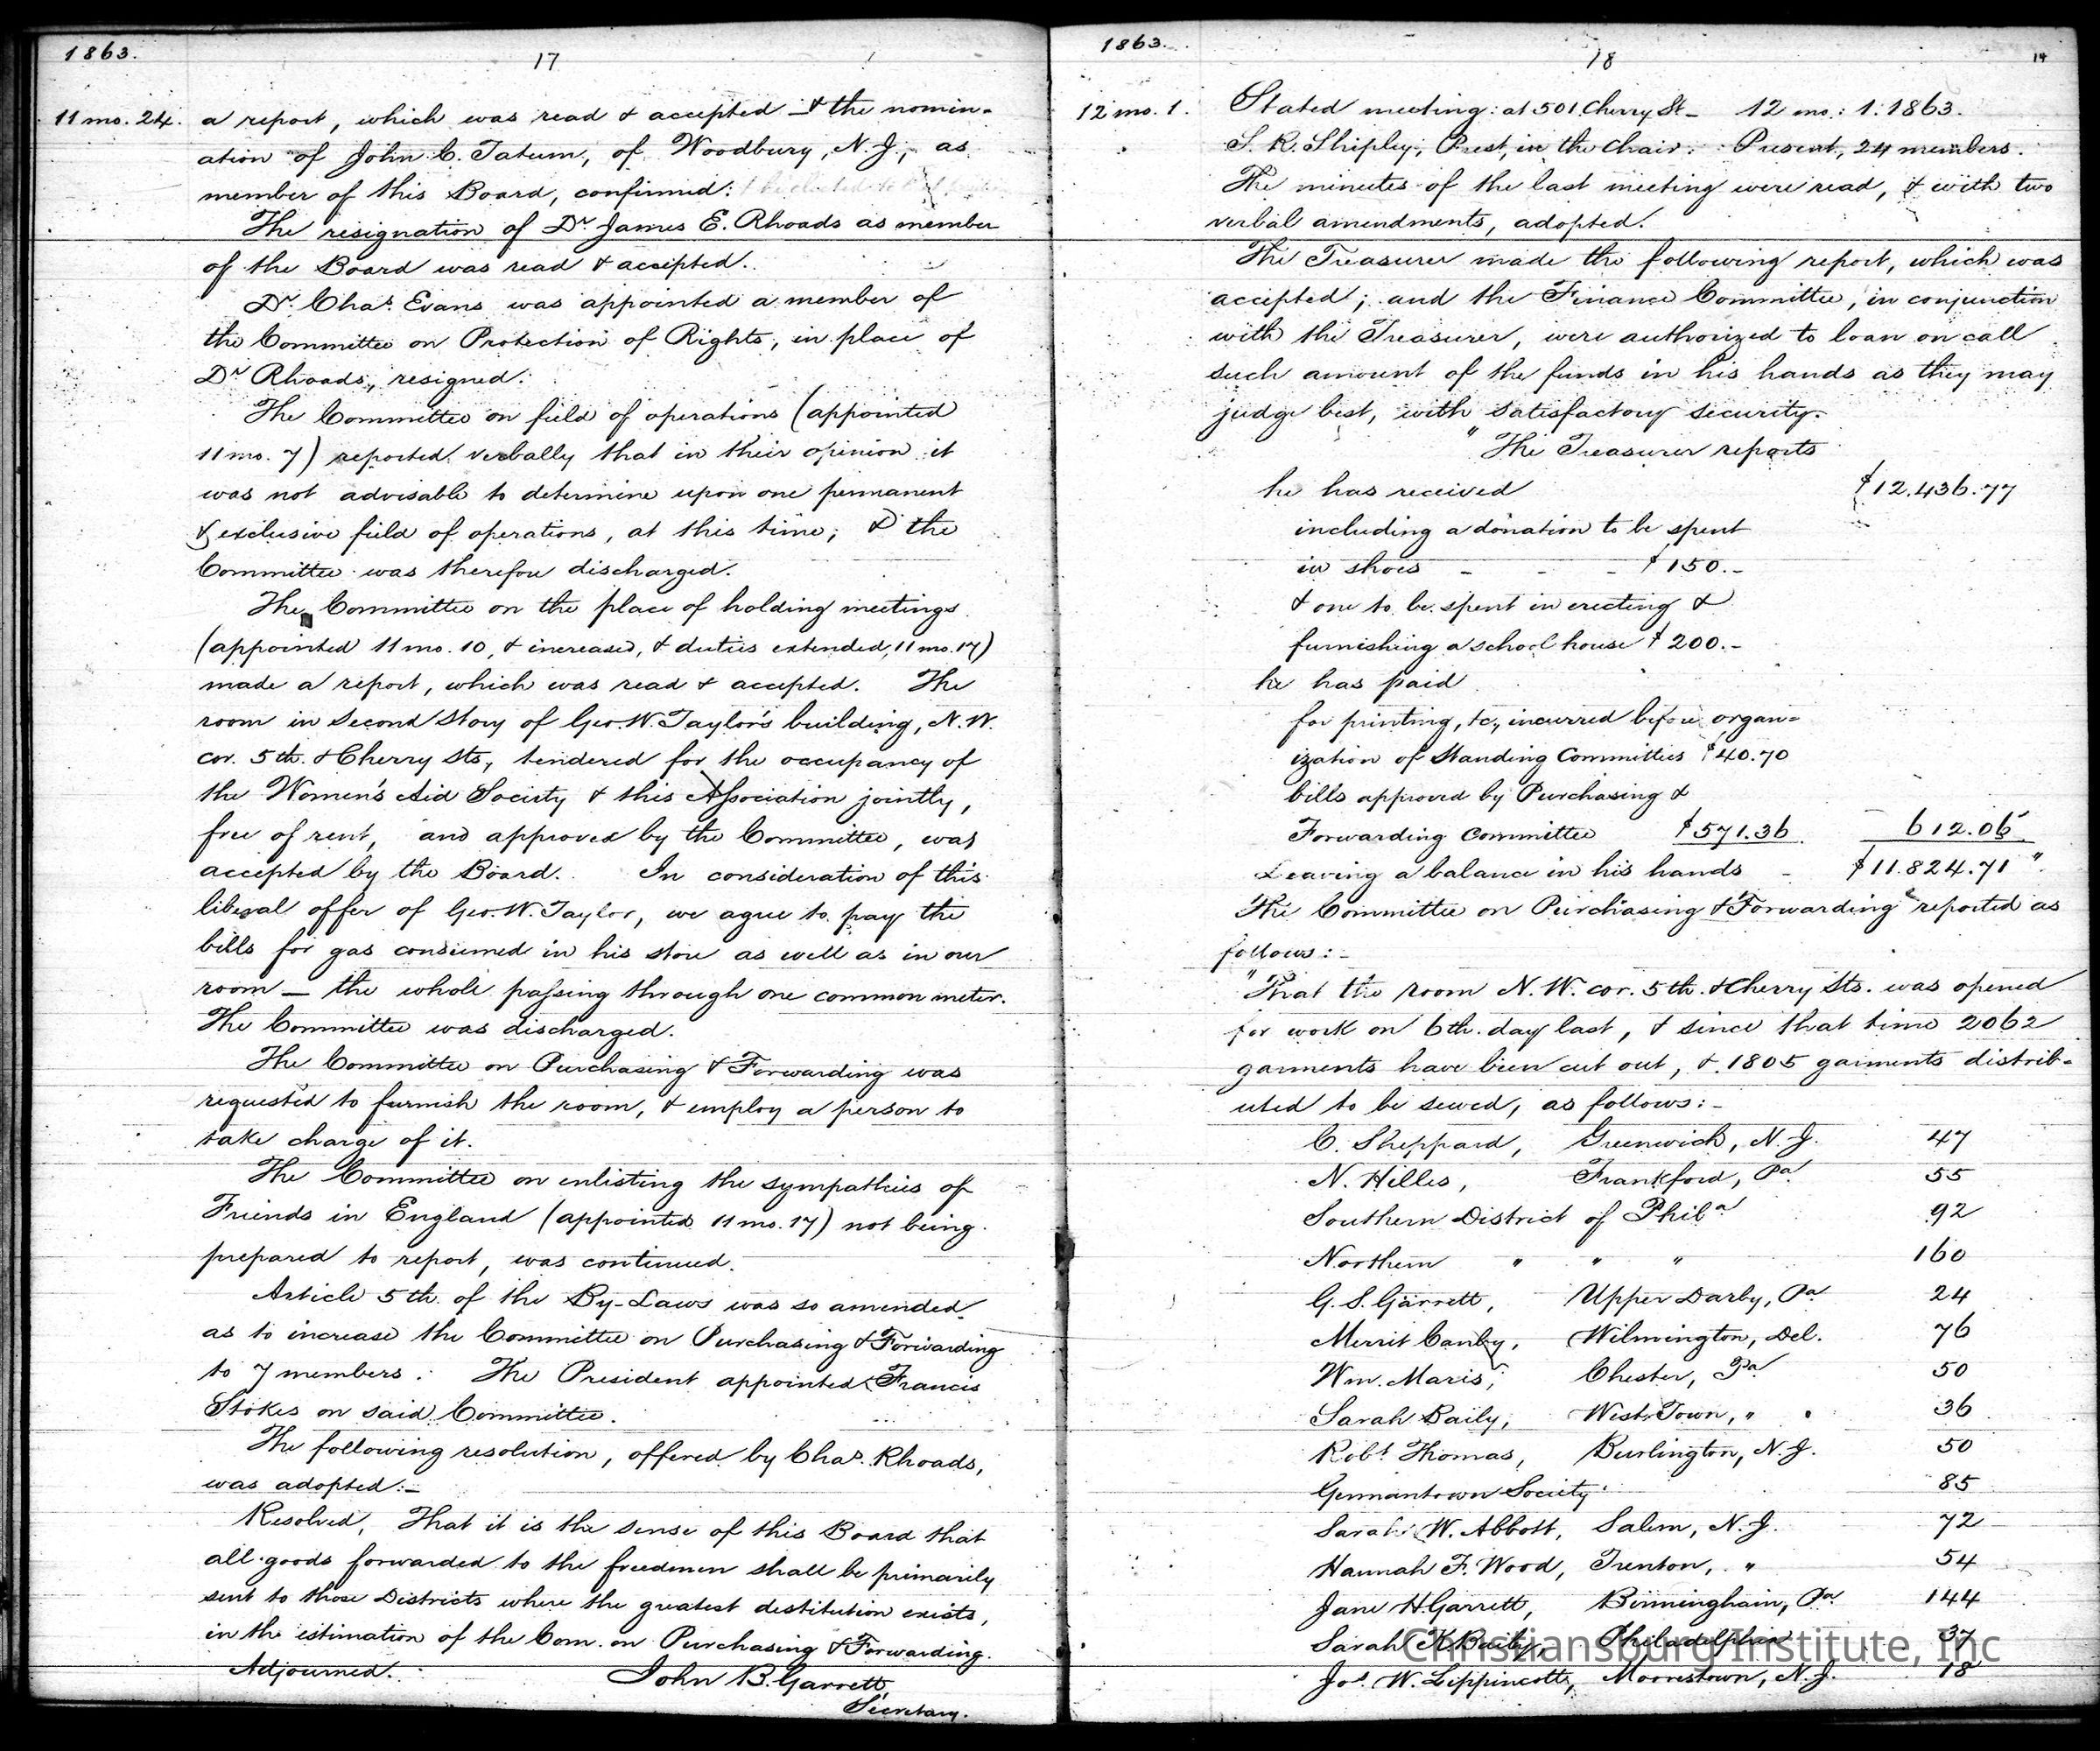 1863.
17
11 mo. 24. a report, which was read & accepted — & the nomin-
ation of John C. Tatum, of Woodbury, N. J., as
member of this Board, confirmed.
The resignation of Dr. James E. Rhoads as member
of the Board was read & accepted.
Dr. Chas. Evans was appointed a member of
the Committee on Protection of Rights, in place of
Dr. Rhoads, resigned.
The Committee on field of operations (appointed
11 mo. 7) reported verbally that in their opinion it
was not advisable to determine upon one permanent
& exclusive field of operations, at this time; & the
Committee was therefore discharged.
The Committee on the place of holding meetings
(appointed 11 mo. 10, & increased, & duties extended, 11 mo. 17)
made a report, which was read & accepted. The
room in second story of Geo. W. Taylor's building, N. W.
cor. 5th. & Cherry Sts, tendered for the occupancy of
the Women's Aid Society & this Association jointly,
free of rent, and approved by the Committee, was
accepted by the Board. In consideration of this
liberal offer of Geo. W. Taylor, we agree to pay the
bills for gas consumed in his store as well as in our
room — the whole passing through one common meter.
The Committee was discharged.
The Committee on Purchasing & Forwarding was
requested to furnish the room, & employ a person to
take charge of it.
The Committee on enlisting the sympathies of
Friends in England (appointed 11 mo. 17) not being
prepared to report, was continued.
Article 5th. of the By-Laws was so amended
as to increase the Committee on Purchasing & Forwarding
to 7 members. The President appointed Francis
Stokes on said Committee.
The following resolution, offered by Chas. Rhoads,
was adopted:-
Resolved, That it is the sense of this Board that
all goods forwarded to the freedmen shall be primarily
sent to those Districts where the greatest destitution exists,
in the estimation of the Com. on Purchasing & Forwarding.
Adjourned. John B. Garrett,
Secretary.
1863.
18
14
12 mo. 1. Stated meeting: at 501 Cherry St — 12 mo: 1. 1863.
S. R. Shipley, Prest, in the Chair. Present, 24 members.
The minutes of the last meeting were read, & with two
verbal amendments, adopted.
The Treasurer made the following report, which was
accepted; and the Finance Committee, in conjunction
with the Treasurer, were authorized to loan on call
such amount of the funds in his hands as they may
judge best, with satisfactory security.
"The Treasurer reports
he has received $12.436.77
including a donation to be spent
in shoes - - - $150.-
& one to be spent in erecting &
furnishing a school house $200.-
he has paid
for printing, &c, incurred before organ-
ization of Standing Committees $40.70
bills approved by Purchasing &
Forwarding Committee $571.36 612.06
Leaving a balance in his hands - $11.824.71"
The Committee on Purchasing & Forwarding reported as
follows:-
"That the room N. W. cor. 5th. & Cherry Sts. was opened
for work on 6th. day last, & since that time 2062
garments have been cut out, & 1805 garments distrib-
uted to be sewed, as follows:-
C. Sheppard, Greenwich, N. J. 47
N. Hilles, Frankford, Pa 55
Southern District of Phila 92
Northern " " " 160
G. S. Garrett, Upper Darby, Pa 24
Merrit Canby, Wilmington, Del. 76
Wm. Maris, Chester, Pa 50
Sarah Baily, West-Town, " 36
Robt Thomas, Burlington, N. J. 50
Germantown Society 85
Sarah W. Abbott, Salem, N. J. 72
Hannah F. Wood, Trenton, " 54
Jane H. Garrett, Birmingham, Pa 144
Sarah K. Baily, Philadelphia 37
Jos. W. Lippincott, Moorestown, N. J. 18
Christiansburg Institute, Inc